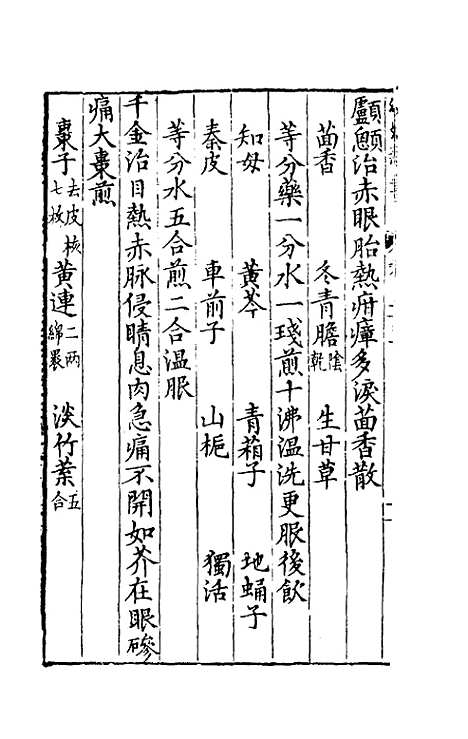 顱顖治赤眼胎熱疳瘴多淚茴香散
茴香　冬青膽陰乾　生甘草
等分藥一分水一琖煎十沸溫洗更服後飲
知母　黃芩　青葙子　地蛹子
秦皮　車前子　山梔　獨活
等分水五合煎二合溫服
千金治目熱赤脉侵睛息肉急痛不開如芥在眼磣
痛大棗煎
棗子去皮核七枚　黃連二兩綿裹　淡竹葉五合